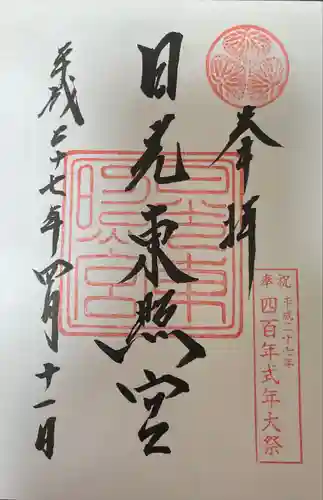 奉拝
日光東照宮
平成二十七年四月十一日
日光東照宮
祝 平成二十七年
奉 四百年式年大祭